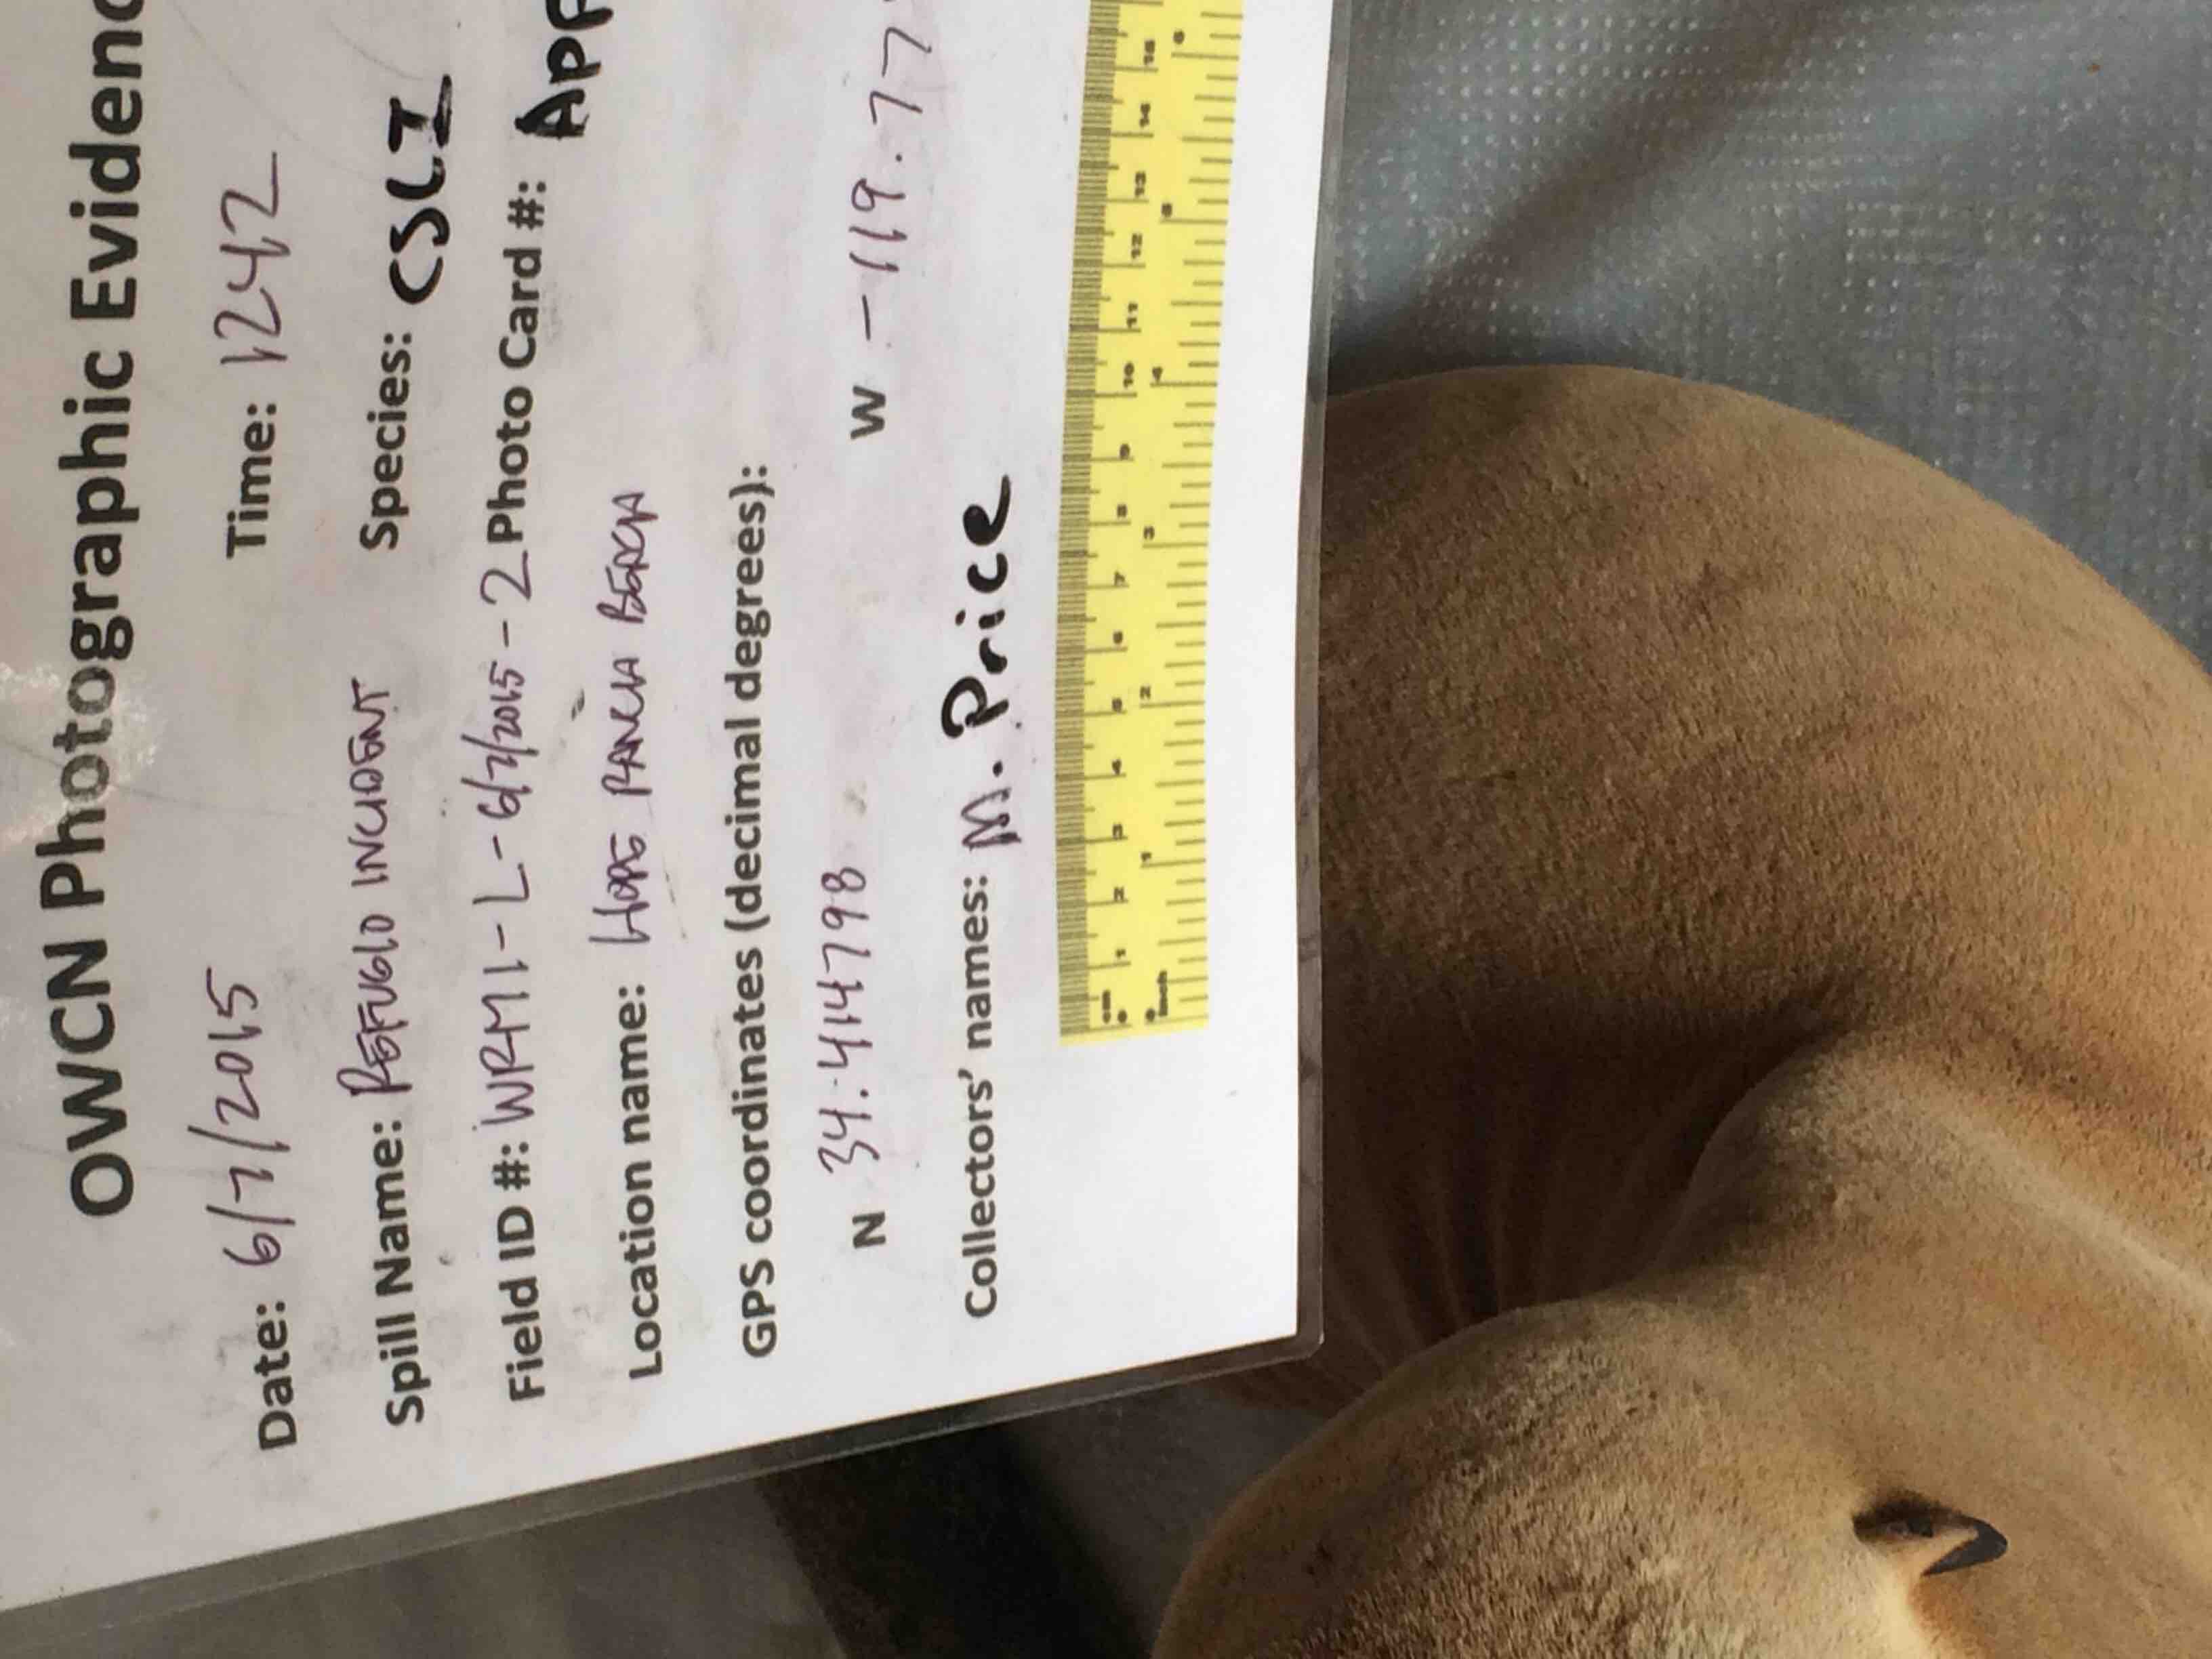 OWCN Photographic Evidenc
Date: 6/7/2015 Time: 1242
Spill Name: REFUGIO INCIDENT Species: CSLI
Field ID #: WRM1-L-6/7/2015-2 Photo Card #: APP
Location name: HOPE RANCH BEACH
GPS coordinates (decimal degrees):
N 34.414798 W -119.77
Collectors' names: M. Price
cm 0 1 2 3 4 5 6 7 8 9 10 11 12 13 14 15
inch 0 1 2 3 4 5 6